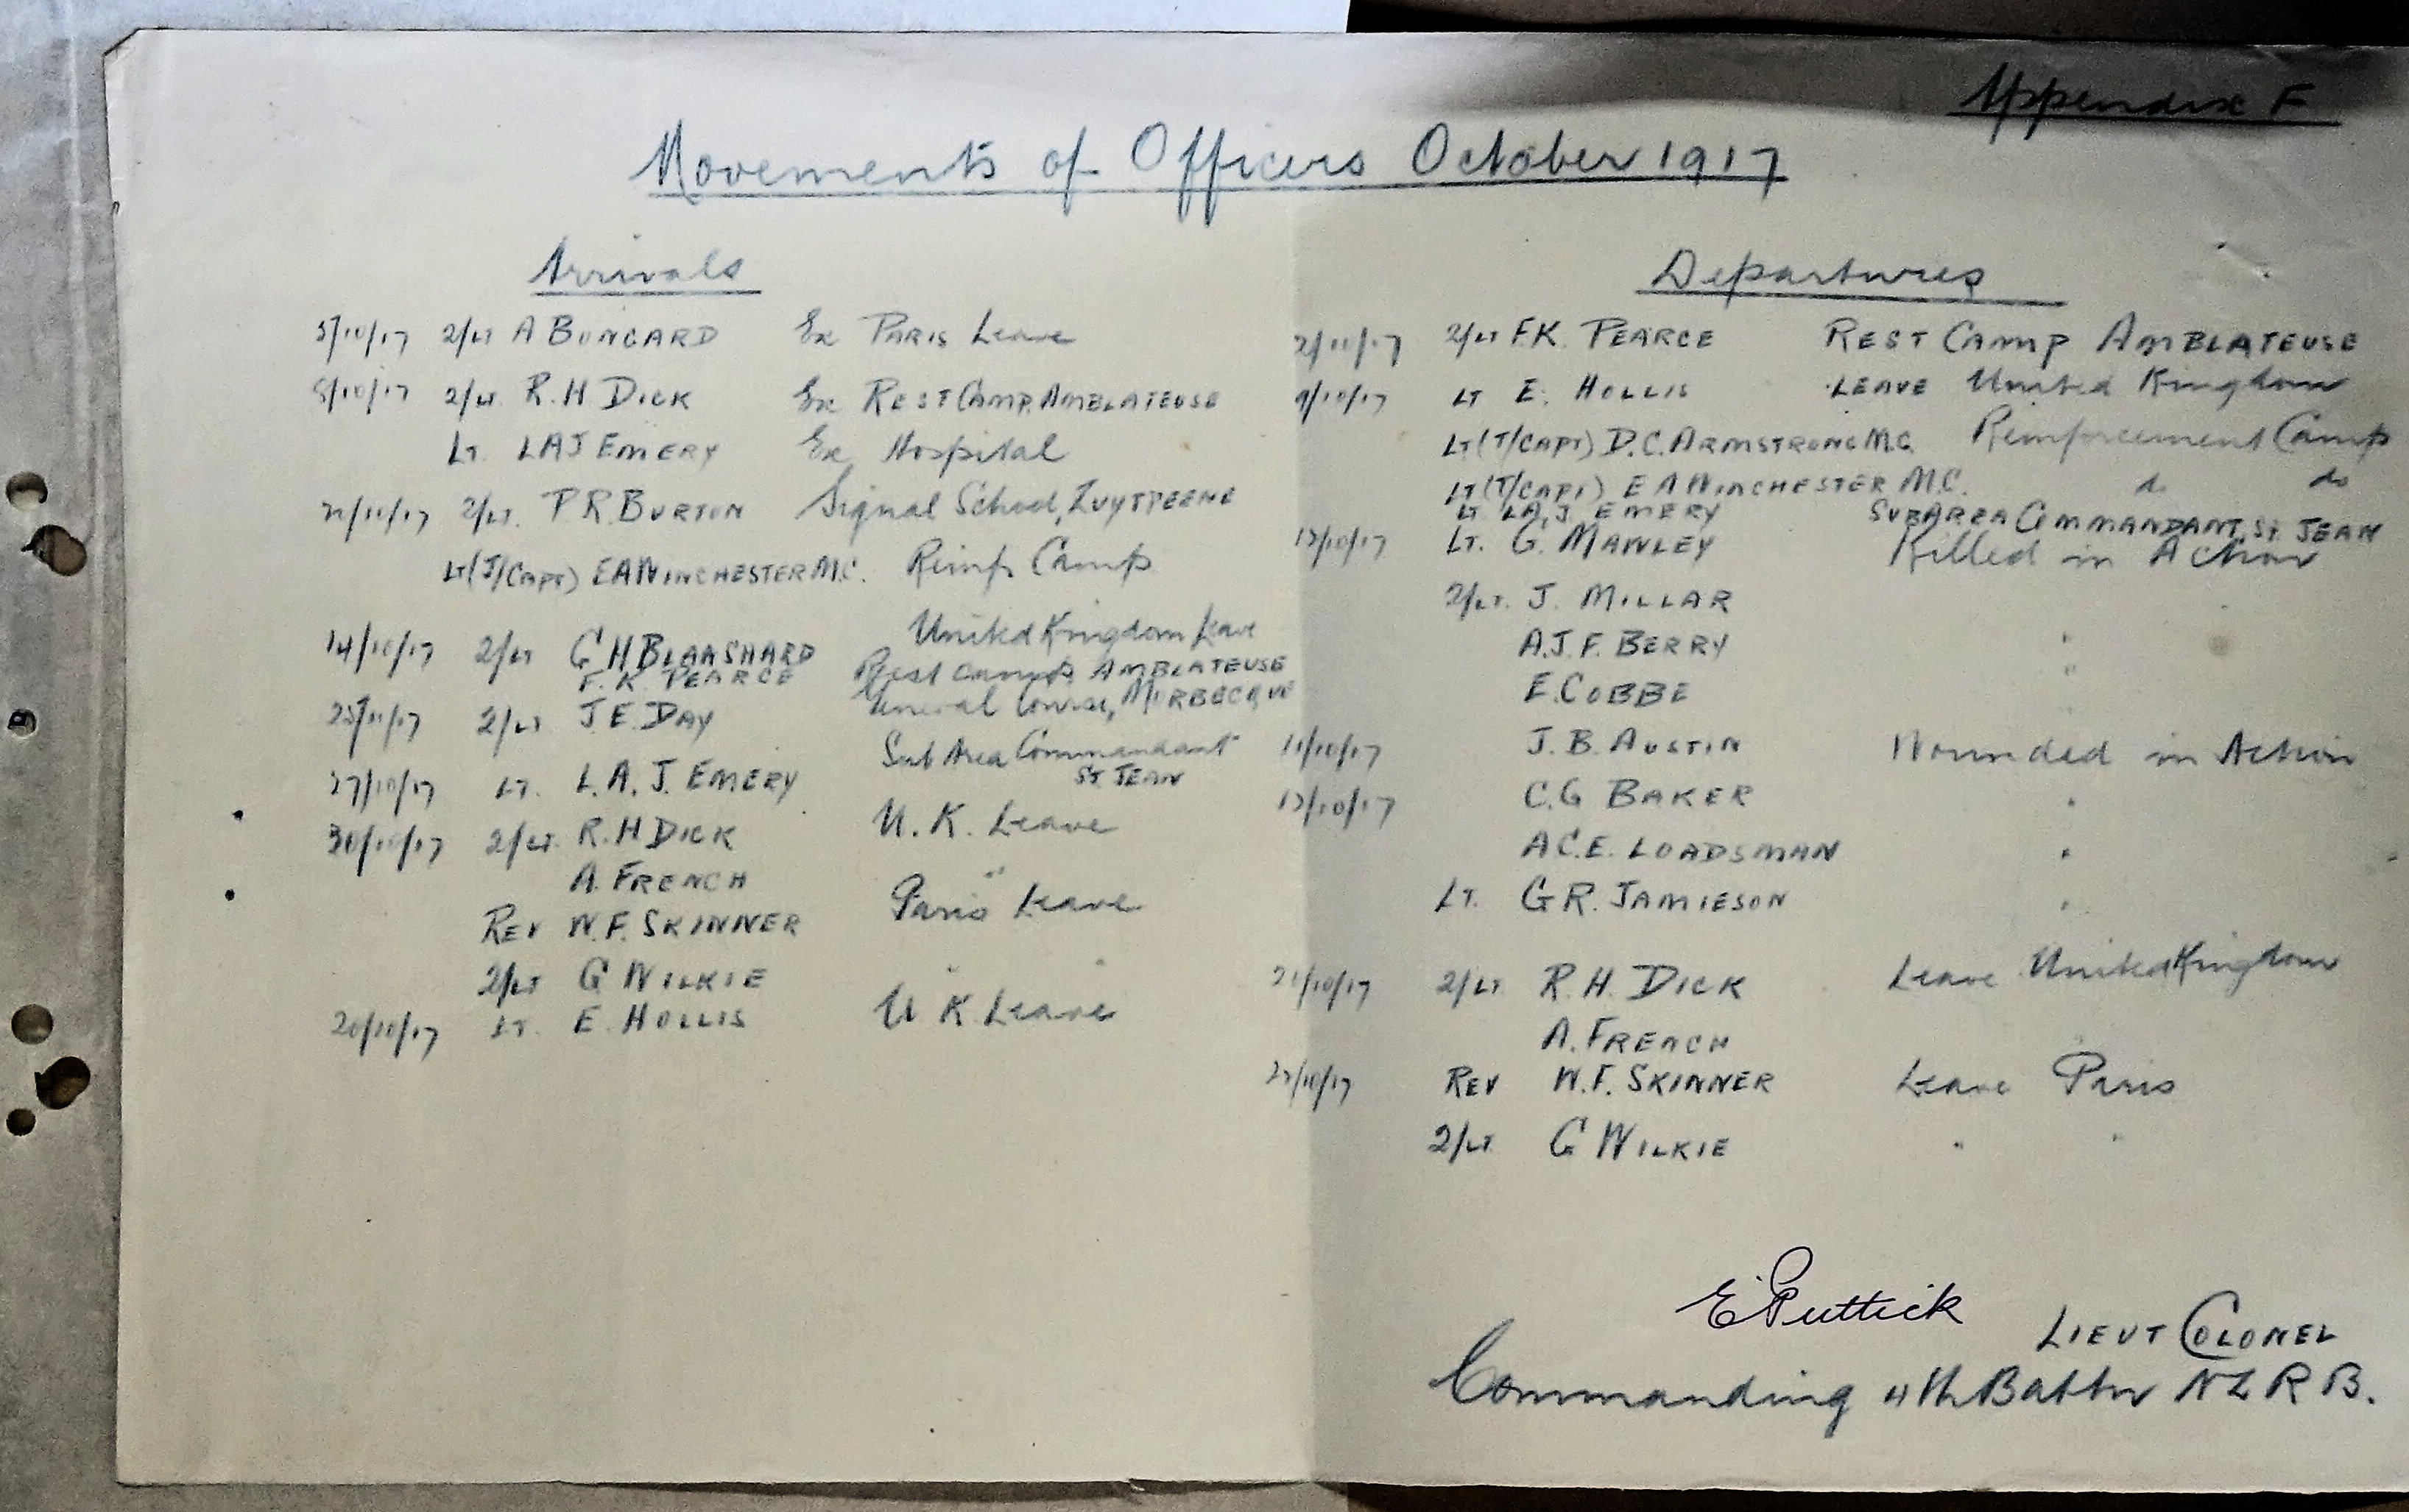 Appendix F
Movements of Officers October 1917
Arrivals
5/10/17 2/Lt A BONGARD Ex PARIS Leave
8/10/17 2/Lt. R.H. DICK Ex REST CAMP, AMBLATEUSE
Lt. LAJ EMERY Ex Hospital
2/Lt. P.R. BURTON Signal School, ZUYTPEENE
Lt (T/CAPT) E A WINCHESTER M.C. Reinf. Camp
14/10/17 2/Lt G H BLAASHARD United Kingdom Leave
F. K. PEARCE Rest Camp, AMBLATEUSE
2/Lt. J E. DAY General Course, MORBECQUE
27/10/17 Lt. L. A. J. EMERY Sub Area Commandant
ST JEAN
30/10/17 2/Lt. R.H DICK U. K. Leave
A. FRENCH "
REV W.F. SKINNER Paris Leave
2/Lt G WILKIE " "
20/10/17 Lt. E. HOLLIS U K Leave
Departures
2/10/17 2/Lt F.K. PEARCE REST CAMP AMBLATEUSE
9/10/17 Lt E. HOLLIS LEAVE United Kingdom
Lt (T/CAPT) D.C. ARMSTRONG M.C. Reinforcement Camp
Lt (T/CAPT) E A WINCHESTER M.C. do do
Lt. L.A.J. EMERY SUB AREA COMMANDANT, St. JEAN
12/10/17 Lt. G. MAWLEY Killed in Action
2/Lt. J. MILLAR
A.J.F. BERRY "
E. COBBE "
J. B. AUSTIN Wounded in Action
12/10/17 C.G BAKER "
A C.E. LOADSMAN "
Lt. G R. JAMIESON "
21/10/17 2/Lt. R. H. DICK Leave United Kingdom
A. FRENCH
REV W.F. SKINNER Leave Paris
2/Lt. G WILKIE " "
E Puttick LIEUT COLONEL
Commanding 4th Battn N Z R B.